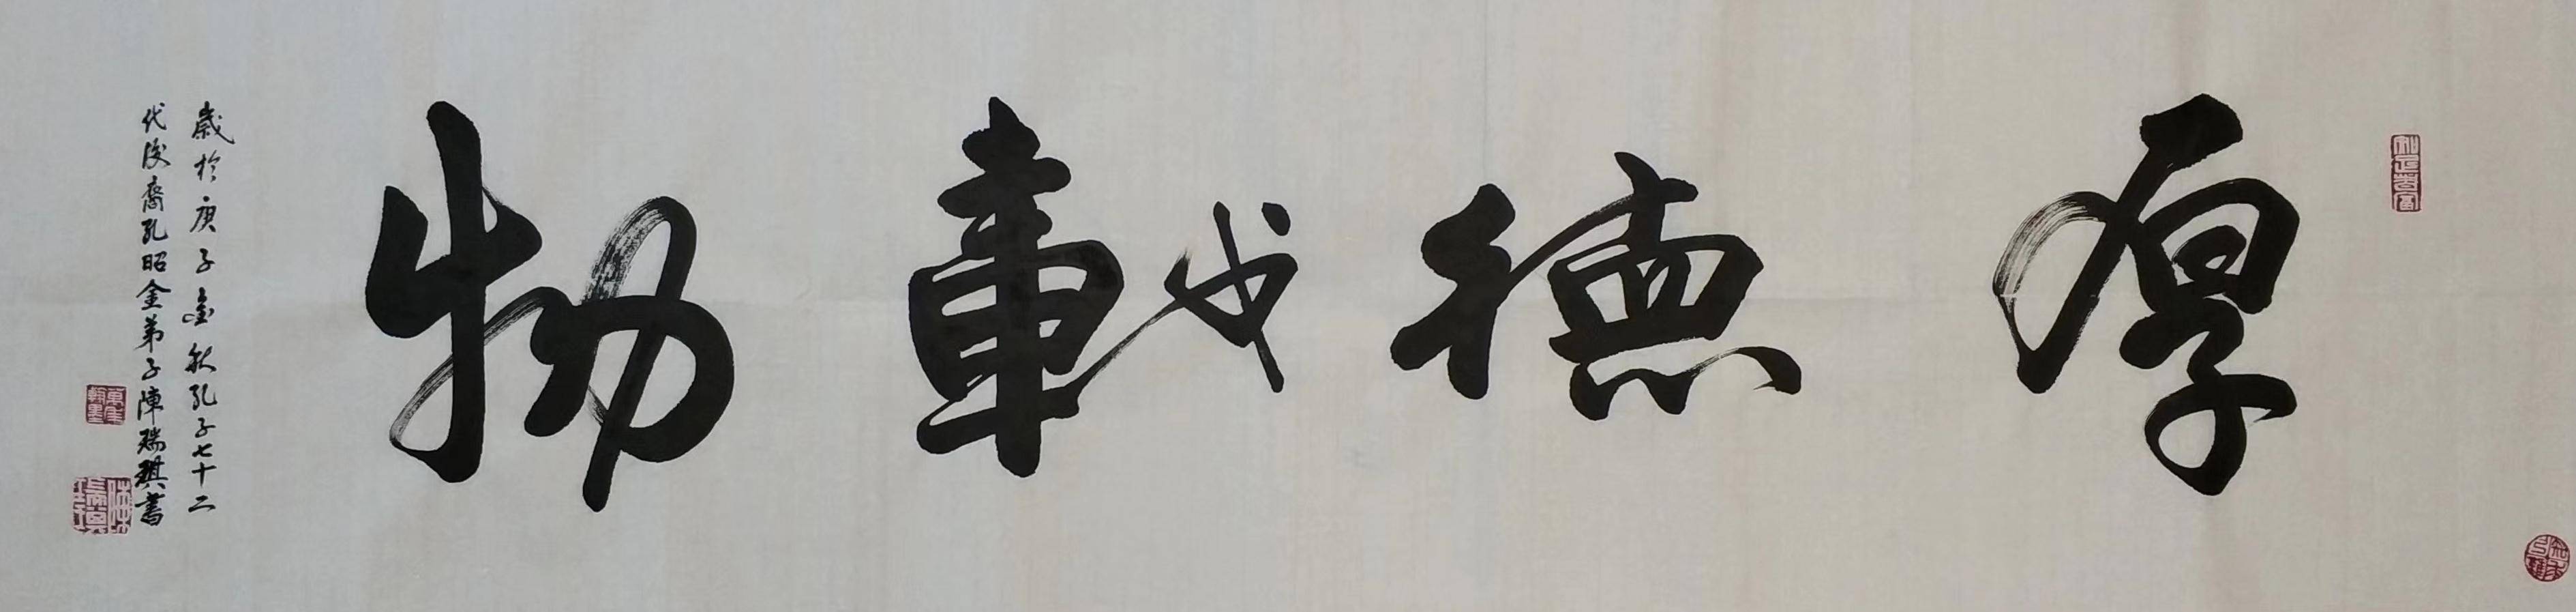 厚德載物
歲於庚子金秋孔子七十二
代後裔孔昭金弟子陳瑞琪書
知足者富